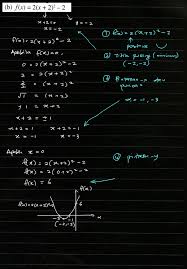 (b) f(x) = 2(x + 2)² − 2
x+2=0
x=-2
y=-2
f(x) = 2(x+2)² - 2
f(x)=0,
0 = 2(x+2)² - 2
2 = 2(x+2)²
2/2 = (x+2)²
1 = (x+2)²
√1 = (x+2)
± 1 = x+2
x+2 = ±1
x+2 = 1 x+2 = -1
x = -1 x = -3
x = 0
f(x) = 2(x+2)² - 2
f(x) = 2(0+2)² - 2
f(x) = 6
① f(x) = 2(x+2)² - 2
positive
② Titik (minimum)
(-2,-2)
③
x = -1, -3
④ pintasan-y
f(x)
6
x
(-2,-2)